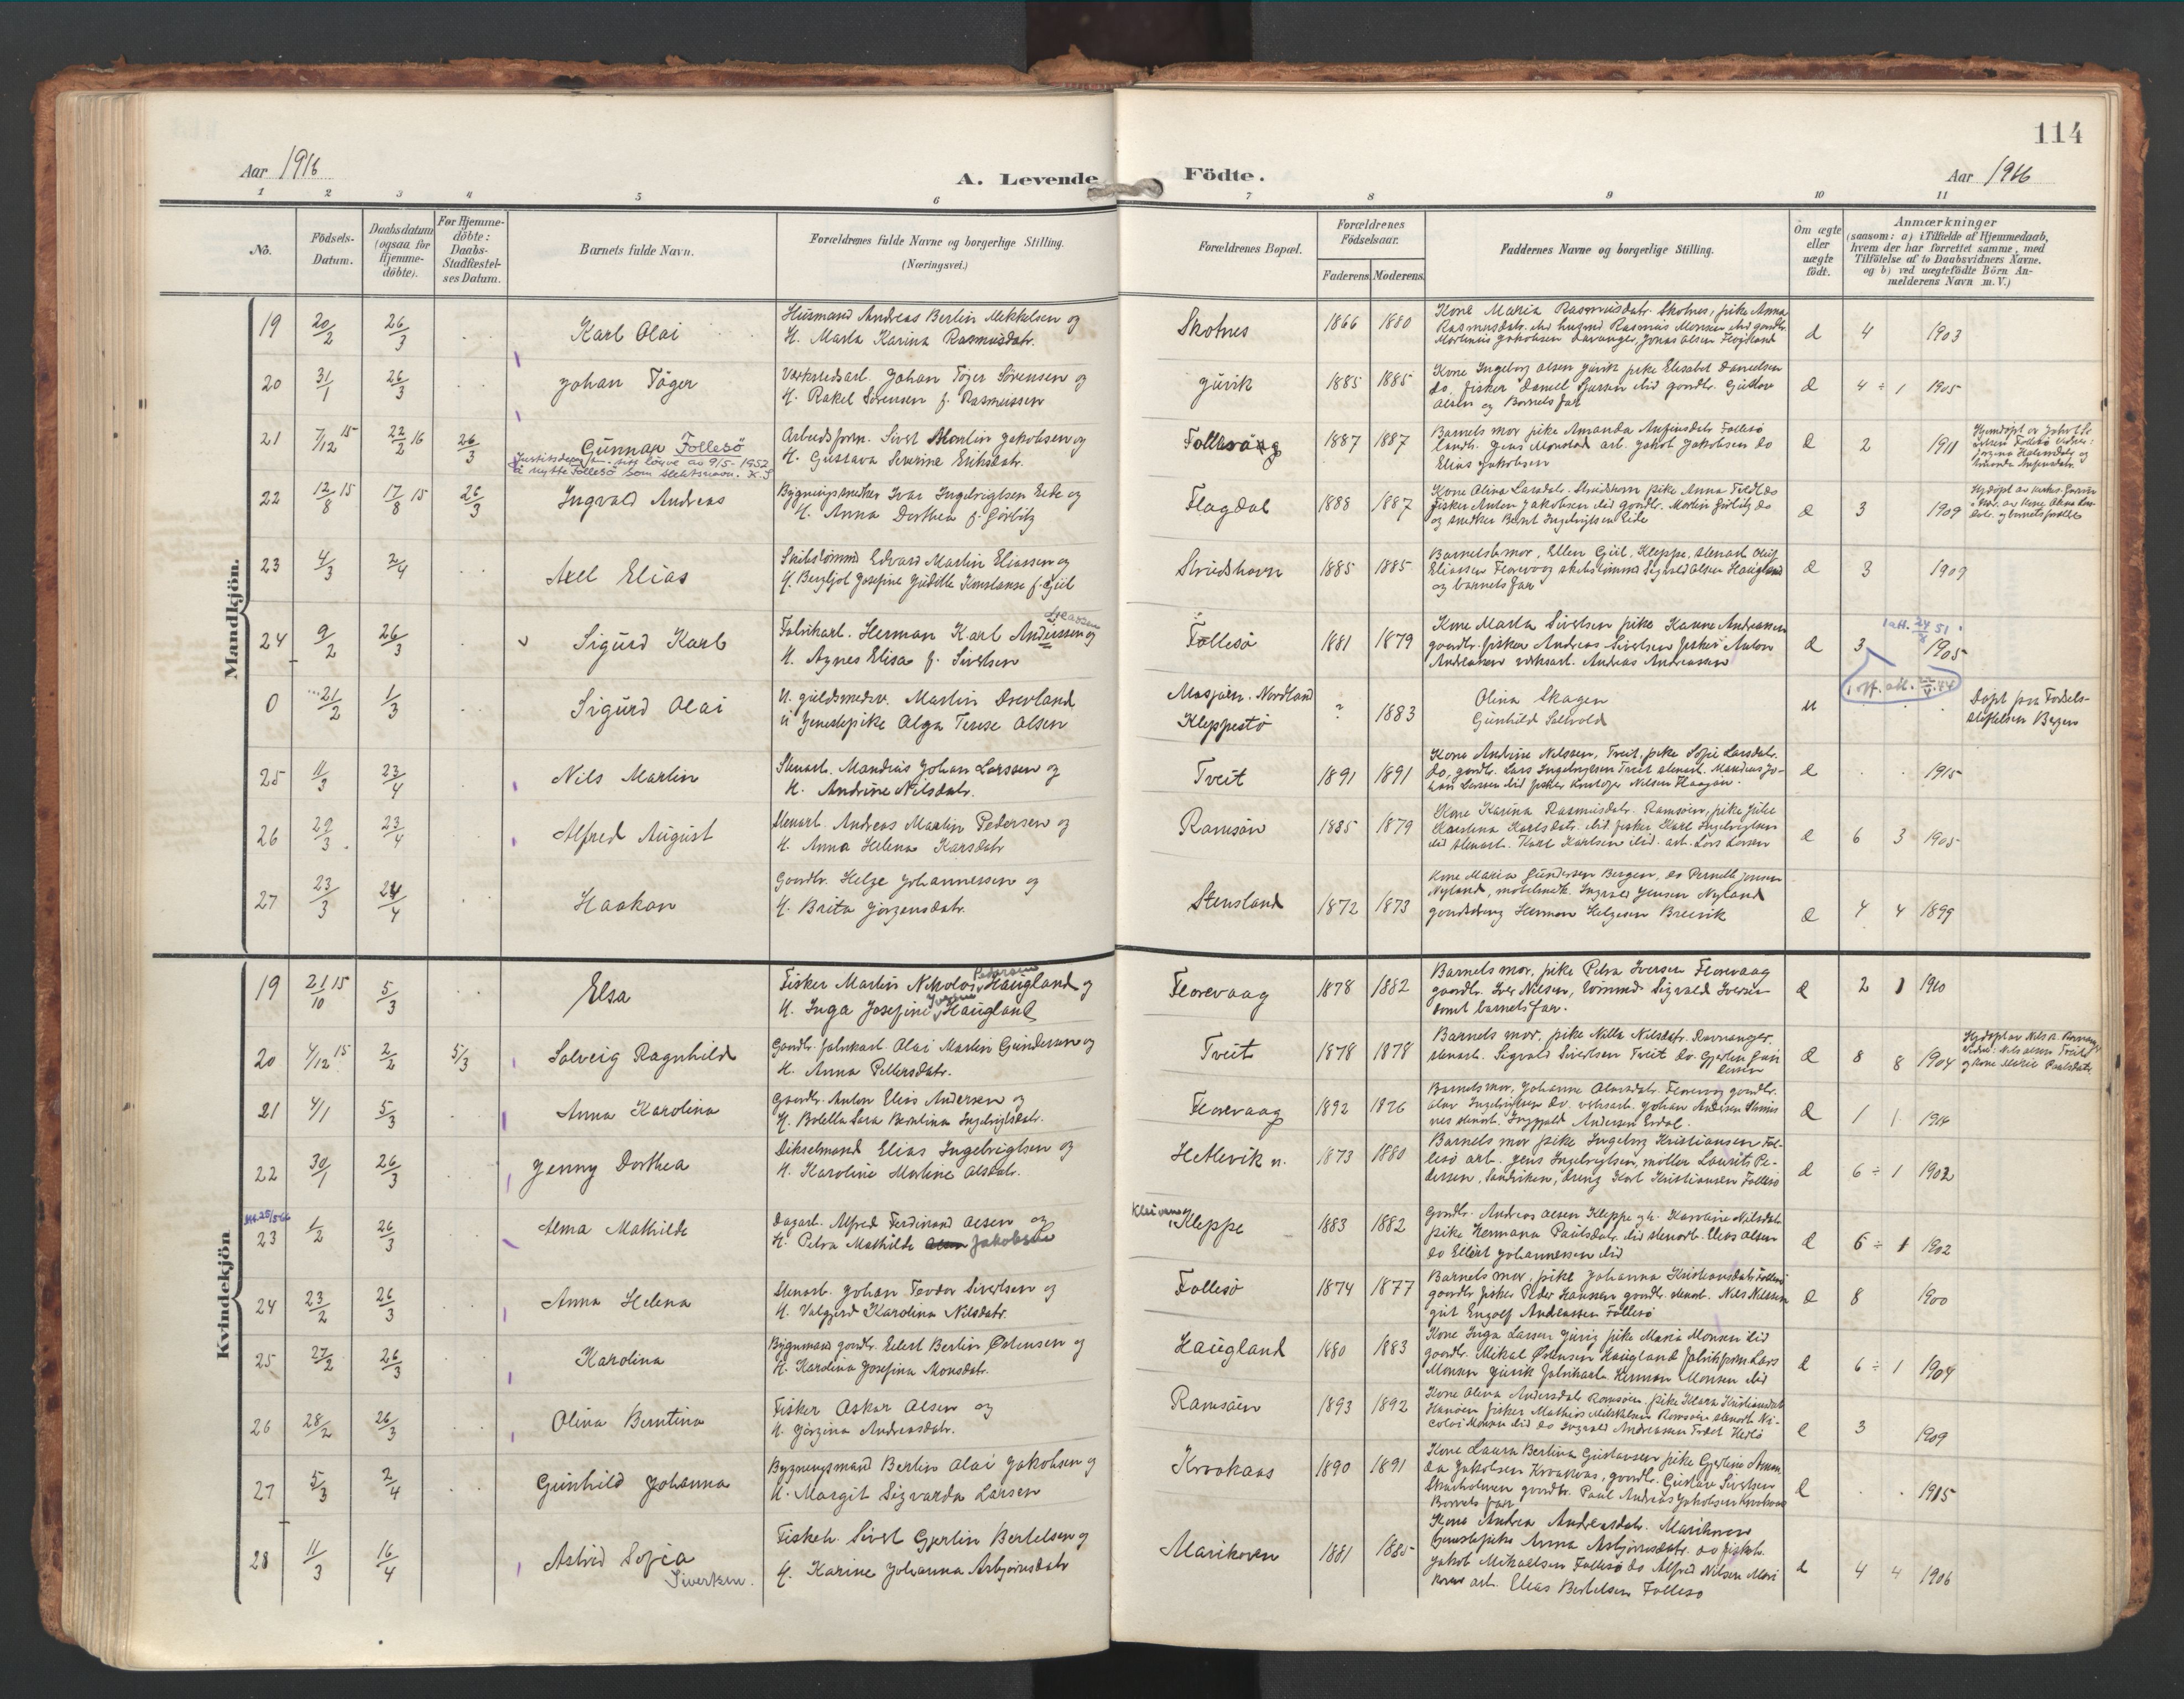 114
Aar 1916
A. Levende Födte.
Aar 1916
1 2 3 4 5 6 7 8 9 10 11
No.
Födsels-Datum.
Daabsdatum (ogsaa for Hjemme-döbte).
For Hjemme-döbte: Daabs-Stadfæstel-ses Datum.
Barnets fulde Navn.
Forældrenes fulde Navne og borgerlige Stilling.
(Næringsvei.)
Forældrenes Bopæl.
Forældrenes Födselsaar.
Faderens. Moderens.
Faddernes Navne og borgerlige Stilling.
Om ægte eller uægte födt.
Anmærkninger
(saasom: a) i Tilfælde af Hjemmedaab,
hvem der har forrettet samme, med
Tilföielse af to Daabsvidners Navne.
og b) ved uægtefödte Börn An-
melderens Navn m. V.)
Mandkjön.
19 20/2 26/3 Karl Olai
Husmand Andreas Bertin Mikkelsen og
H. Marta Karina Rasmusdatr.
Skotnes 1866 1880
Kone Maria Rasmusdatr. Skotnes, pike Anna
Rasmusdatr. ibid husmd Rasmus Monsen ibid gaardbr.
æ 4 1903
20 31/1 26/3 Johan Töger
Verkstedsarb. Johan Töger Sörensen og
H. Rakel Sörensen f. Rasmussen
Jurik 1885 1885
Kone Ingeborg Olsen Jurik pike Elisabet Danielsen
Olsen og Barnets far
æ 4 ÷ 1 1905
21 7/12 15 22/2 16 26/3 Gunnar Follesö
Justitsdepartm. gitt löyve av 9/5-1952
å nytte Follesö som slektsnavn. K.S
Arbeidsform. Sivert Martin Jakobsen og
H. Gustava Severine Eriksdatr.
Follesö 1887 1887
Barnets mor pike Amanda Anfinsdatr Follesö
landh. Jens Monstad arb. Jakob Jakobsen do
Elias Jakobsen
æ 2 1911
22 12/8 15 17/8 15 26/3 Ingvald Andreas
Bygningssnedker Ivar Ingebrigtsen Eide og
H. Anna Dorthea f. Görlitz
Flagdal 1888 1887
Fisker Anton Jakobsen ibid gaardbr. Martin Görlitz do
og snedker Bernt Ingebrigtsen Eide
æ 3 1909
23 4/3 2/4 Axel Elias
Skibstömmd Edvard Martin Eliassen og
H. Bergljot Josefine Juditte Konstanse f. Giil
Strudshavn 1885 1885
Barnets bmor, Ellen Giil, Kleppe, stenarb Oluf
Eliassen Florevaag skibstömmd Sigvald Olsen Haugland
og barnets far
æ 3 1909
24 9/2 26/3 Sigurd Karl
Fabrikarb. Herman Karl Anderssen og
H. Agnes Elisa f. Sivertsen
Follesö 1881 1879
Kone Marta Sivertsen pike Hanne Andreassen
gaardbr. fisker Andreas Sivertsen fisker Anton
Andreassen verksarb. Andreas Andreassen
æ 3 1905
1 att. 24/8 51
1 off. att.
0 21/2 1/3 Sigurd Olai
U. guldsmedsv. Martin Overland
u tjenestepike Olga Terese Olsen
Mosjøen. Nordland
Kleppestö ? 1883
Olina Skagen
Gunhild Sallvold
u
Döpt paa Födsels-
stiftelsen Bergen
25 11/3 23/4 Nils Martin
Stenarb. Mandius Johan Larssen og
H. Andrine Nilsdatr.
Tveit 1891 1891
Kone Andrine Nilssen, Tveit, pike Sofie Larsdatr.
do, gaardbr. Lars Ingebrigtsen Tveit stenarb. Mandius Jo-
æ 1915
26 29/3 23/4 Alfred August
Stenarb. Andreas Martin Pedersen og
H. Anna Helena Karsdatr
Ramsöen 1885 1879
Kone Karina Rasmusdatr. Ramsöen, pike Julie
Karolina Karlsdatr. ibid. fisker Karl Ingebrigtsen
ibid stenarb. Karl Karlsen ibid. arb. Lars Larsen
æ 6 3 1905
27 23/3 24/4 Haakon
Gaardbr. Helge Johannessen og
H. Brita Jörgensdatr.
Stensland 1872 1873
Kone Maria Gundersen Bergen, do Pernille Jensen
Nyland, möbelsnedk. Ingvald Jensen Nyland
gaardsdreng Herman Helgesen Breivik
æ 4 4 1899
Kvindekjön
19 21/10 15 5/3 Elsa
Fisker Martin Nikolai Pedersen Haugland og
H. Inga Josefine Iversen Haugland
Florevaag 1878 1882
Barnets mor, pike Petra Iversen Florevaag
gaardbr. Iver Nilsen, tömmd Sigvald Iversen
samt barnets far.
æ 2 1 1910
20 4/12 15 2/2 5/3 Solveig Ragnhild
Gaardbr. fabrikarb. Olai Martin Gundersen og
H. Anna Pettersdatr.
Tveit 1878 1878
Barnets mor, pike Nilla Nilsdatr. Ravnanger,
stenarb. Sigvald Sivertsen Tveit do. Gjertin Gun
dersen
æ 8 8 1904
21 4/1 5/3 Anna Karolina
Gaardbr. Anton Elias Andersen og
H. Botella Sara Berntina Ingebrigtsdatr.
Florevaag 1892 1896
Barnets mor, Johanne Olarsdatr. Florevag gaardbr.
æ 1 1 1914
22 30/1 26/3 Jenny Dorthea
Dikselmand Elias Ingebrigtsen og
H. Karoline Martine Olsdatr.
Hetlevik n. 1873 1880
Barnets mor pike Ingeborg Kristiansen Fol-
lesö arb. Jens Ingebrigtsen, möller Laurits Pe-
dersen, Sandviken, dreng Karl Kristiansen Follesö
æ 6 ÷ 1 1902
23 1/2 26/3 Alma Mathilde
Dagarb. Alfred Ferdinand Olsen og
H. Petra Mathilde Jakobsen
Kleppe 1883 1882
Gaardbr. Andreas Olsen Kleppe og h. Karoline Nilsdatr
pike Hermana Paulsdatr. ibid stenarb. Elias Olsen
do Ellert Johannessen ibid
æ 6 ÷ 1 1902
24 23/2 26/3 Anna Helena
Stenarb. Johan Teodor Sivertsen og
H. Valgjerd Karolina Nilsdatr.
Follesö 1874 1877
Barnets mor, pike Johanna Kristiansdatr Follesö
gaardbr fisker Peder Hanssen gaardbr. stenarb. Nils Nilssen
gut Engolf Andreassen Follesö
æ 8 1900
25 27/2 26/3 Karolina
Bygnmand gaardbr. Eilert Bertin Östensen og
H. Karolina Josefina Monsdatr.
Haugland 1880 1883
Kone Inga Larsen Jurig pike Maria Monsen ibid
gaardbr. Mikal Östensen Haugland fabrikform Lars
Monsen Jurik fabrikarb. Herman Monsen ibid
æ 6 ÷ 1 1904
26 28/2 26/3 Olina Berntina
Fisker Oskar Olsen og
H. Jörgina Andreasdatr.
Ramsöen 1893 1892
Kone Olina Andersdatr Ramsöen pike Klara Kristiansdatr
æ 3 1909
27 5/3 2/4 Gunhild Johanna
Bygningsmand Bertin Olai Jakobsen og
H. Margit Sigvarda Larsen
Krokaas 1890 1891
Kone Laura Bertina Gustavsen pike Gjertine Aman
da Jakobsen Krokaas, gaardbr. Gustav Sivertsen
Skarholmen gaardbr. Paul Andreas Jakobsen Krokaas
Barnets far
æ 1915
28 11/3 16/4 Astrid Sofia
Sivertsen.
Fiskeh. Sivert Gjertin Bertelsen og
H. Karine Johanna Asbjörnsdatr
Marikoven 1881 1885
Kone Andrea Andreasdatr. Marikoven
tjenestepike Anna Asbjörnsdatr. do fiskeh.
Jakob Mikaelsen Follesö do Alfred Nilsen Mari
koven arb. Elias Bertelsen Follesö
æ 4 4 1906